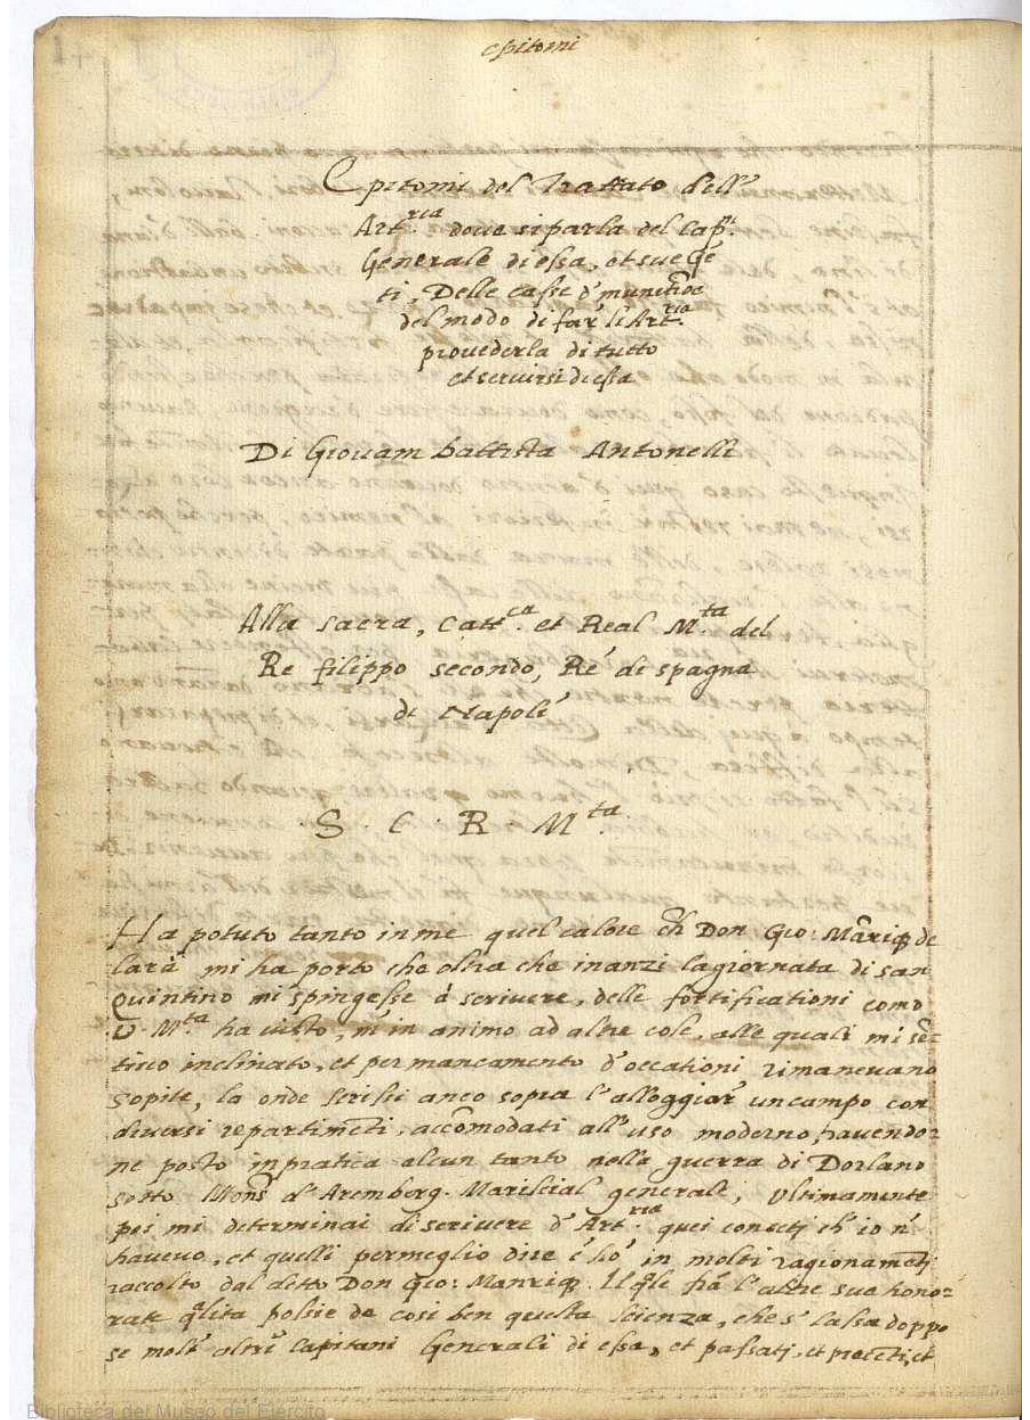 epitomi
Epitomi del Trattato dell'
Art.ria doue si parla del cap.
Generale di essa, et sue gẽ
ti, Delle casse d' munitiõe
del modo di far' li Art.ria
prouederla di tutto
et seruirsi di essa
Di Giouam battista Antonelli
Alla sacra, Catt.ca et Real M.ta del
Re filippo secondo, Ré di spagna
di Napoli
. S . C . R . M.ta
Ha potuto tanto in me quel calore ch̃ Don Gio: Mãriq̃ de
lara mi ha porto che oltra che inanzi la giornata di san
Quintino mi spingesse à scriuere, delle fortificationi como
V. M.ta ha uisto, m'in animo ad altre cose, alle quali mi sẽ=
tiuo inclinato, et per mancamento d'occationi rimaneuano
sopite, la onde scrissi anco sopra l'alloggiar' un campo con
diuersi repartimẽti, accõmodati all'uso moderno, hauendo=
ne posto in pratica alcun tanto nella guerra di Dorlano
sotto Mons. d'Aremberg. Mariscial generale, Vltimamente
poi mi determinai di scriuere d' Art.ria quei concetj ch' io n'
haueuo, et quelli per meglio dire c' ho' in molti ragionamẽtj
raccolto dal detto Don Gio: Manriq̃. Il q̃le frà l'altre sue hono=
rate q̃lita possie de cosi ben questa scienza, che s' lassa doppo
se molt' altri Capitani Generali di essa, et passatj, et presẽti, et
Biblioteca del Museo del Ejército